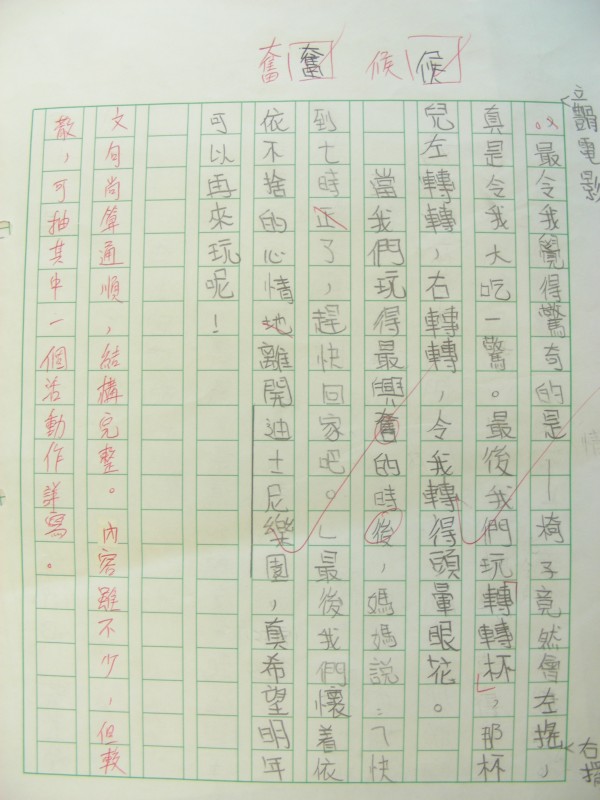 奮 奮 候 候
立體電影
右搖
最令我覺得驚奇的是——椅子竟然會左搖,
真是令我大吃一驚。最後我們玩轉轉杯,那杯
兒左轉轉,右轉轉,令我轉得頭暈眼花。
當我們玩得最興奮的時後,媽媽說:「快
到七時正了,趕快回家吧。」最後我們懷着依
依不捨的心情地離開迪士尼樂園,真希望明年
可以再來玩呢!
文句尚算通順,結構完整。內容雖不少,但較
散,可抽其中一個活動作詳寫。